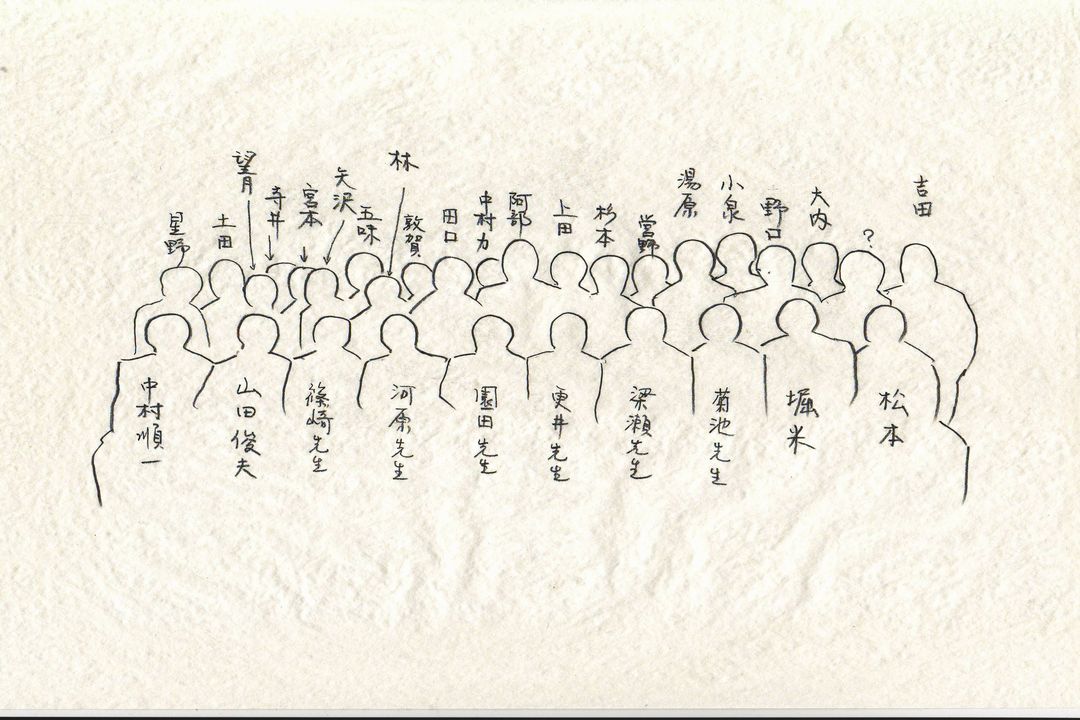 星野
土田
望月
寺井
宮本
矢沢
五味
林
敦賀
田口
中村力
阿部
上田
杉本
営野
湯原
小泉
野口
大内
?
吉田
中村順一
山田俊夫
篠崎先生
河原先生
園田先生
更井先生
梁瀬先生
菊池先生
堀米
松本